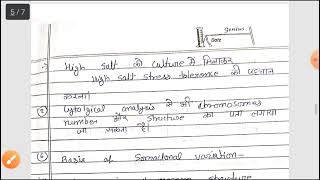 5/7
Genius
Date
→ High salt को culture में मिलाकर
High salt stress tolerance की पहचान
करना।
Cytolgical analysis से भी chromosomes
number और structure का पता लगाया
जा सकता है।
⑥ Basis of Somaclonal variation—
structure